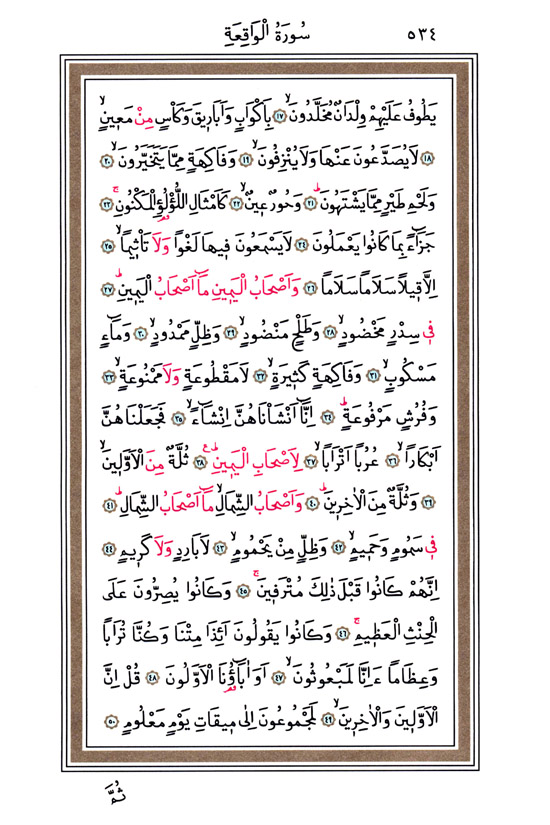 ٥٣٤ سُورَةُ الْوَاقِعَةِ
يَطُوفُ عَلَيْهِمْ وِلْدَانٌ مُخَلَّدُونَۙ ﴿١٧﴾ بِاَكْوَابٍ وَاَبَارٖيقَ وَكَأْسٍ مِنْ مَعٖينٍۙ
﴿١٨﴾ لَا يُصَدَّعُونَ عَنْهَا وَلَا يُنْزِفُونَۙ ﴿١٩﴾ وَفَاكِهَةٍ مِمَّا يَتَخَيَّرُونَۙ ﴿٢٠﴾
وَلَحْمِ طَيْرٍ مِمَّا يَشْتَهُونَۜ ﴿٢١﴾ وَحُورٌ عٖينٌۙ ﴿٢٢﴾ كَاَمْثَالِ اللُّؤْلُؤِ الْمَكْنُونِۚ ﴿٢٣﴾
جَزَٓاءً بِمَا كَانُوا يَعْمَلُونَ ﴿٢٤﴾ لَا يَسْمَعُونَ فٖيهَا لَغْوًا وَلَا تَأْثٖيمًاۙ ﴿٢٥﴾
اِلَّا قٖيلًا سَلَامًا سَلَامًا ﴿٢٦﴾ وَاَصْحَابُ الْيَمٖينِ مَٓا اَصْحَابُ الْيَمٖينِۜ ﴿٢٧﴾
فٖي سِدْرٍ مَخْضُودٍۙ ﴿٢٨﴾ وَطَلْحٍ مَنْضُودٍۙ ﴿٢٩﴾ وَظِلٍّ مَمْدُودٍۙ ﴿٣٠﴾ وَمَٓاءٍ
مَسْكُوبٍۙ ﴿٣١﴾ وَفَاكِهَةٍ كَثٖيرَةٍۙ ﴿٣٢﴾ لَا مَقْطُوعَةٍ وَلَا مَمْنُوعَةٍۙ ﴿٣٣﴾
وَفُرُشٍ مَرْفُوعَةٍۜ ﴿٣٤﴾ اِنَّٓا اَنْشَأْنَاهُنَّ اِنْشَٓاءًۙ ﴿٣٥﴾ فَجَعَلْنَاهُنَّ
اَبْكَارًاۙ ﴿٣٦﴾ عُرُبًا اَتْرَابًاۙ ﴿٣٧﴾ لِاَصْحَابِ الْيَمٖينِۜ ﴿٣٨﴾ ثُلَّةٌ مِنَ الْاَوَّلٖينَۙ
﴿٣٩﴾ وَثُلَّةٌ مِنَ الْاٰخِرٖينَۜ ﴿٤٠﴾ وَاَصْحَابُ الشِّمَالِۙ مَٓا اَصْحَابُ الشِّمَالِۜ ﴿٤١﴾
فٖي سَمُومٍ وَحَمٖيمٍۙ ﴿٤٢﴾ وَظِلٍّ مِنْ يَحْمُومٍۙ ﴿٤٣﴾ لَا بَارِدٍ وَلَا كَرٖيمٍ ﴿٤٤﴾
اِنَّهُمْ كَانُوا قَبْلَ ذٰلِكَ مُتْرَفٖينَۚ ﴿٤٥﴾ وَكَانُوا يُصِرُّونَ عَلَى
الْحِنْثِ الْعَظٖيمِۚ ﴿٤٦﴾ وَكَانُوا يَقُولُونَ اَئِذَا مِتْنَا وَكُنَّا تُرَابًا
وَعِظَامًا ءَاِنَّا لَمَبْعُوثُونَۙ ﴿٤٧﴾ اَوَاٰبَٓاؤُنَا الْاَوَّلُونَ ﴿٤٨﴾ قُلْ اِنَّ
الْاَوَّلٖينَ وَالْاٰخِرٖينَۙ ﴿٤٩﴾ لَمَجْمُوعُونَ اِلٰى مٖيقَاتِ يَوْمٍ مَعْلُومٍ ﴿٥٠﴾
ثُمَّ